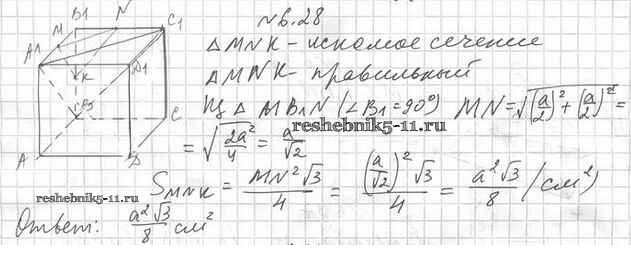 №6.28
B1 N C1
M
A1 D1
K
B C
A D
△MNK - искомое сечение
△MNK - правильный
Из △ MB1N (∠B1=90°) MN=√((a/2)²+(a/2)²) =
= √(2a²/4) = a/√2
reshebnik5-11.ru
S_MNK = MN²√3/4 = (a/√2)²√3/4 = a²√3/8 (см²)
reshebnik5-11.ru
Ответ: a²√3/8 см²